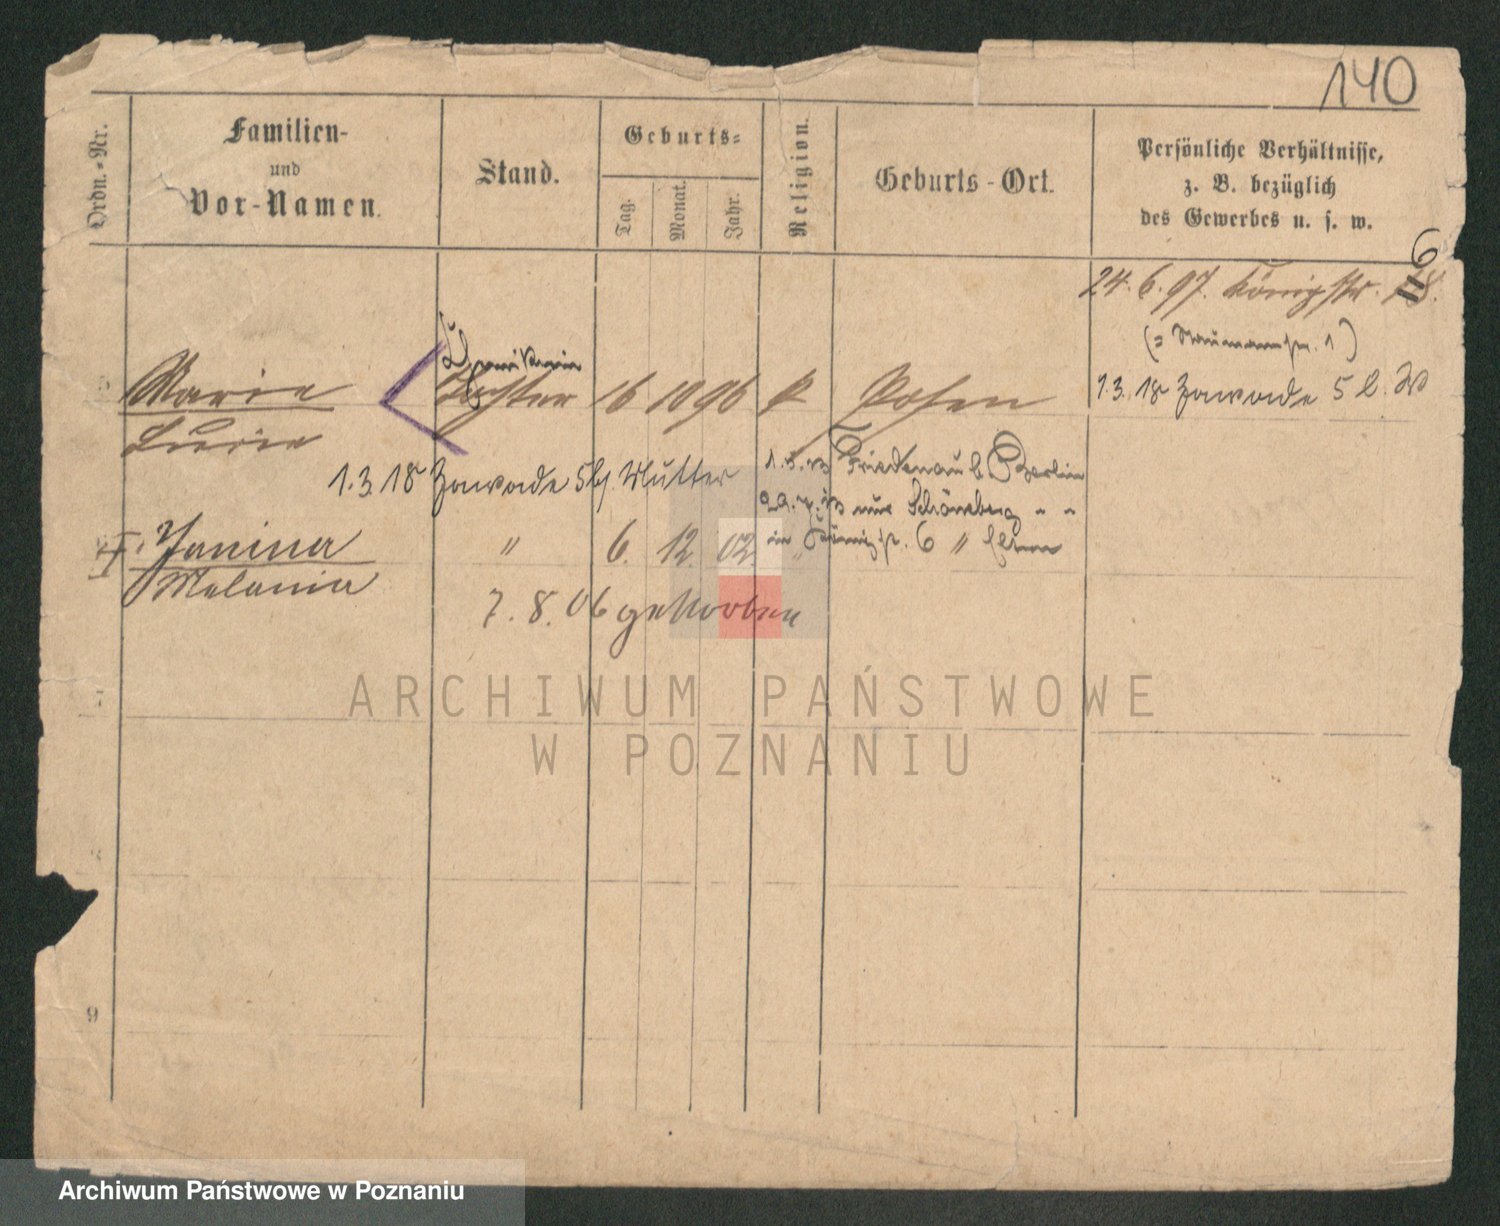 140
Ordn.-Nr.
Familien-
und
Vor-Namen.
Stand.
Geburts-
Tag.
Monat.
Jahr.
Religion.
Geburts-Ort.
Persönliche Verhältnisse,
z. B. bezüglich
des Gewerbes u. s. w.
6
24. 6. 97. Königstr.
(= Naumannstr. 1)
5
Marie
Tochter 16 10 96 k Posen
1.3. 18 Zawade 5 b. W
Lucie
1.3 18 Zawade 5 b/ Mutter
Friedenau b Berlin
nur Schöneberg " "
in Königstr. 6 " Eltern
Janina " 6. 12. 02. "
Melania
7. 8. 06 gestorben
7
8
9
ARCHIWUM PAŃSTWOWE
W POZNANIU
Archiwum Państwowe w Poznaniu